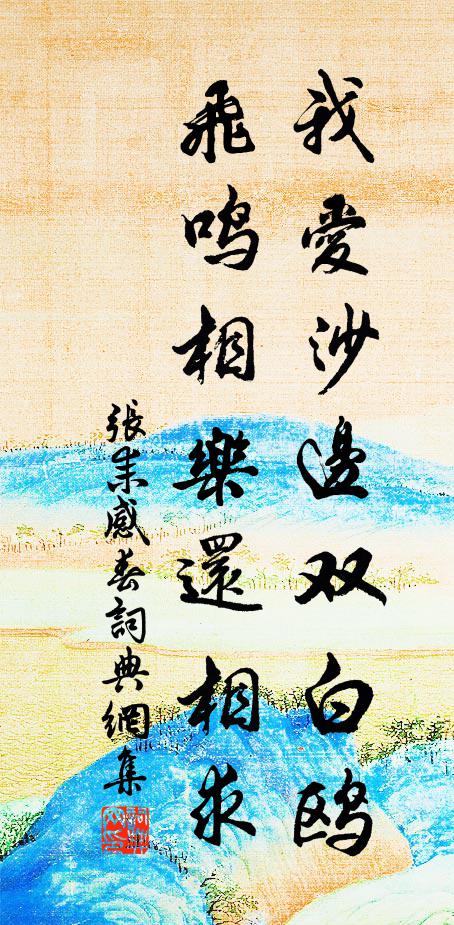 我愛沙邊双白鸥
飛鸣相樂還相求
張耒感春詞典網集